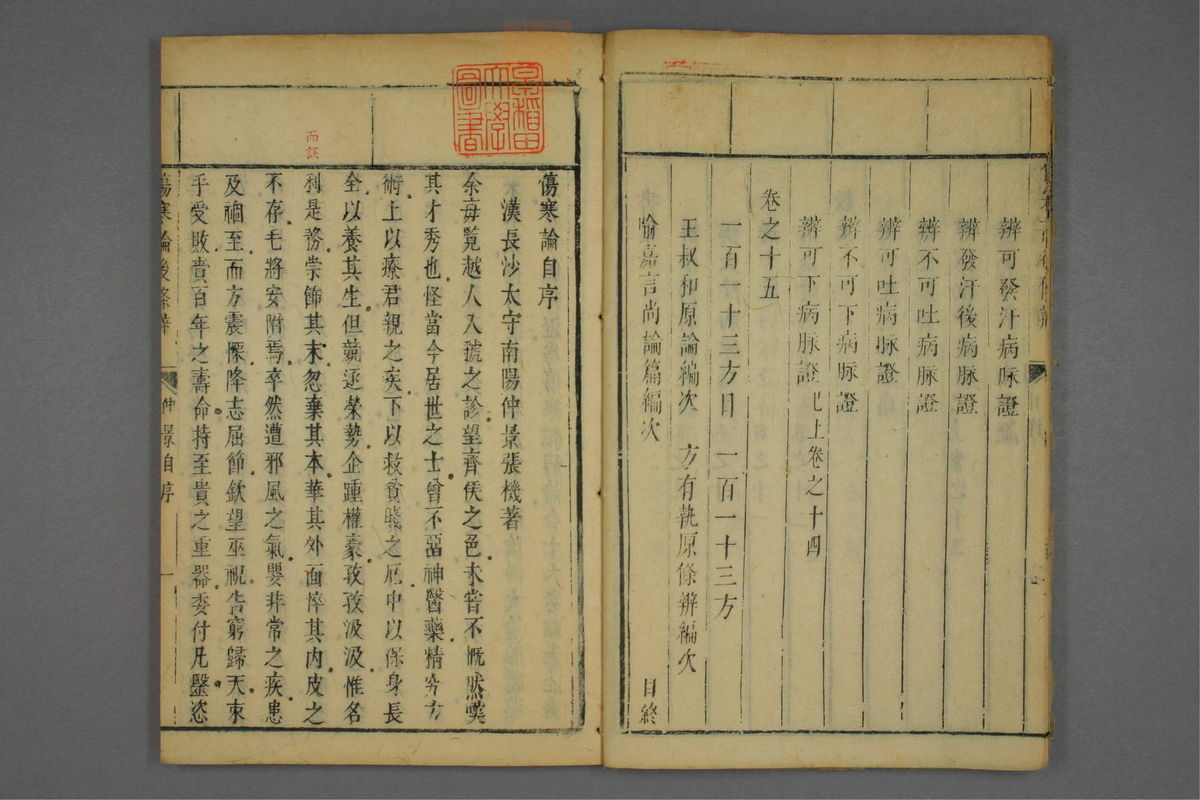 辨可發汗病脉證
辨發汗後病脉證
辨不可吐病脉證
辨可吐病脉證
辨不可下病脉證
辨可下病脉證 已上卷之十四
卷之十五
一百一十三方目 一百一十三方
王叔和原論編次 方有執原條辨編次
喻嘉言尚論篇編次 目終
早稲田
大學
圖書
傷寒論自序
漢長沙太守南陽仲景張機著
余每覧越人入虢之診望齊侯之色未嘗不慨然嘆
其才秀也怪當今居世之士曾不畱神醫藥精究方
術上以療君親之疾下以救貧賤之厄中以保身長
全以養其生但競逐榮勢企踵權豪孜孜汲汲惟名
利是務崇飾其末忽棄其本華其外而悴其内皮之
不存毛將安附焉卒然遭邪風之氣嬰非常之疾患
及禍至而方震慄降志屈節欽望巫祝告窮歸天束
手受敗賫百年之壽命持至貴之重器委付凡鑿恣
傷寒論後條辨 仲景自序 一
而誤